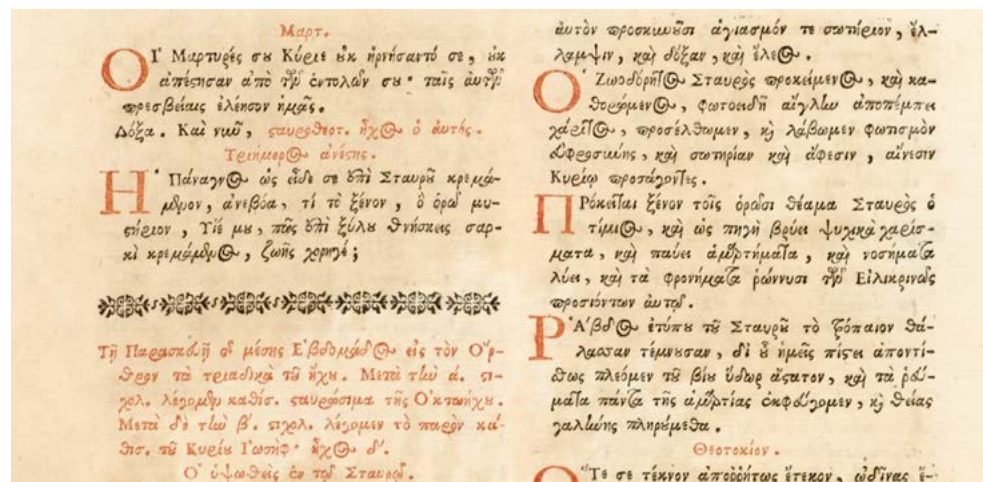 Μαρτ.
ΟἹ Μαρτυρές σου Κύριε οὐκ ἠρνήσαντό σε, οὐκ
ἀπέστησαν ἀπὸ τῶν ἐντολῶν σου· ταῖς αὐτῶν
πρεσβείαις ἐλέησον ἡμᾶς.
Δόξα. Καὶ νῦν, σταυροθεοτ. ἦχος ὁ αὐτός.
Τριήμερος ἀνέστης.
Ἡ Πάναγνος ὡς εἶδέ σε ἐπὶ Σταυροῦ κρεμά-
μενον, ἀνεβόα, τί τὸ ξένον, ὃ ὁρῶ μυ-
στήριον, Υἱέ μου, πῶς ἐπὶ ξύλου θνήσκεις σαρ-
κὶ κρεμάμενος, ζωῆς χορηγέ;
Τῇ Παρασκευῇ τῆς μέσης Ἑβδομάδος εἰς τὸν Ὄρ-
θρον τὰ τριαδικὰ τοῦ ἤχου. Μετὰ τὴν ά. στι-
χολ. λέγομεν καθίσ. σταυρώσιμα τῆς Ὀκτωήχου.
Μετὰ δὲ τὴν β´. στιχολ. λέγομεν τὸ παρὸν κά-
θισ. τοῦ Κυρίου Ἰωσήφ· ἦχος δ´.
Ὁ ὑψωθεὶς ἐν τῷ Σταυρῷ.
αὐτὸν προσκυνοῦσι ἁγιασμόν τε σωτήριον, ἔλ-
λαμψιν, καὶ δόξαν, καὶ ἔλεος.
Ὁ Ζωοδόρητος Σταυρὸς προκείμενος, καὶ κα-
θορώμενος, φωτοειδῆ αἴγλην ἀποπέμπει
χάριτος, προσέλθωμεν, καὶ λάβωμεν φωτισμὸν
εὐφροσύνης, καὶ σωτηρίαν καὶ ἄφεσιν, αἴνεσιν
Κυρίῳ προσάγοντες.
ΠΡόκειται ξένον τοῖς ὁρῶσι θέαμα Σταυρὸς ὁ
τίμιος, καὶ ὡς πηγὴ βρύει ψυχικὰ χαρίσ-
ματα, καὶ παύει ἁμαρτήματα, καὶ νοσήματα
λύει, καὶ τὰ φρονήματα ῥώννυσι τῶν Εἰλικρινῶς
προσιόντων αὐτῷ.
ῬΑ´βδος ἐτύπου τοῦ Σταυροῦ τὸ τρόπαιον θά-
λασσαν τέμνουσαν, δι' οὗ ἡμεῖς πίστει ἀποντί-
στως πλέομεν τοῦ βίου ὕδωρ ἄστατον, καὶ τὰ ῥεύ-
ματα πάντα τῆς ἁμαρτίας ἐκφεύγομεν, καὶ θείας
γαλήνης πληρούμεθα.
Θεοτοκίον.
Ὅτε σε τέκνον ἀποῤῥήτως ἔτεκον, ὠδῖνας ἔ-